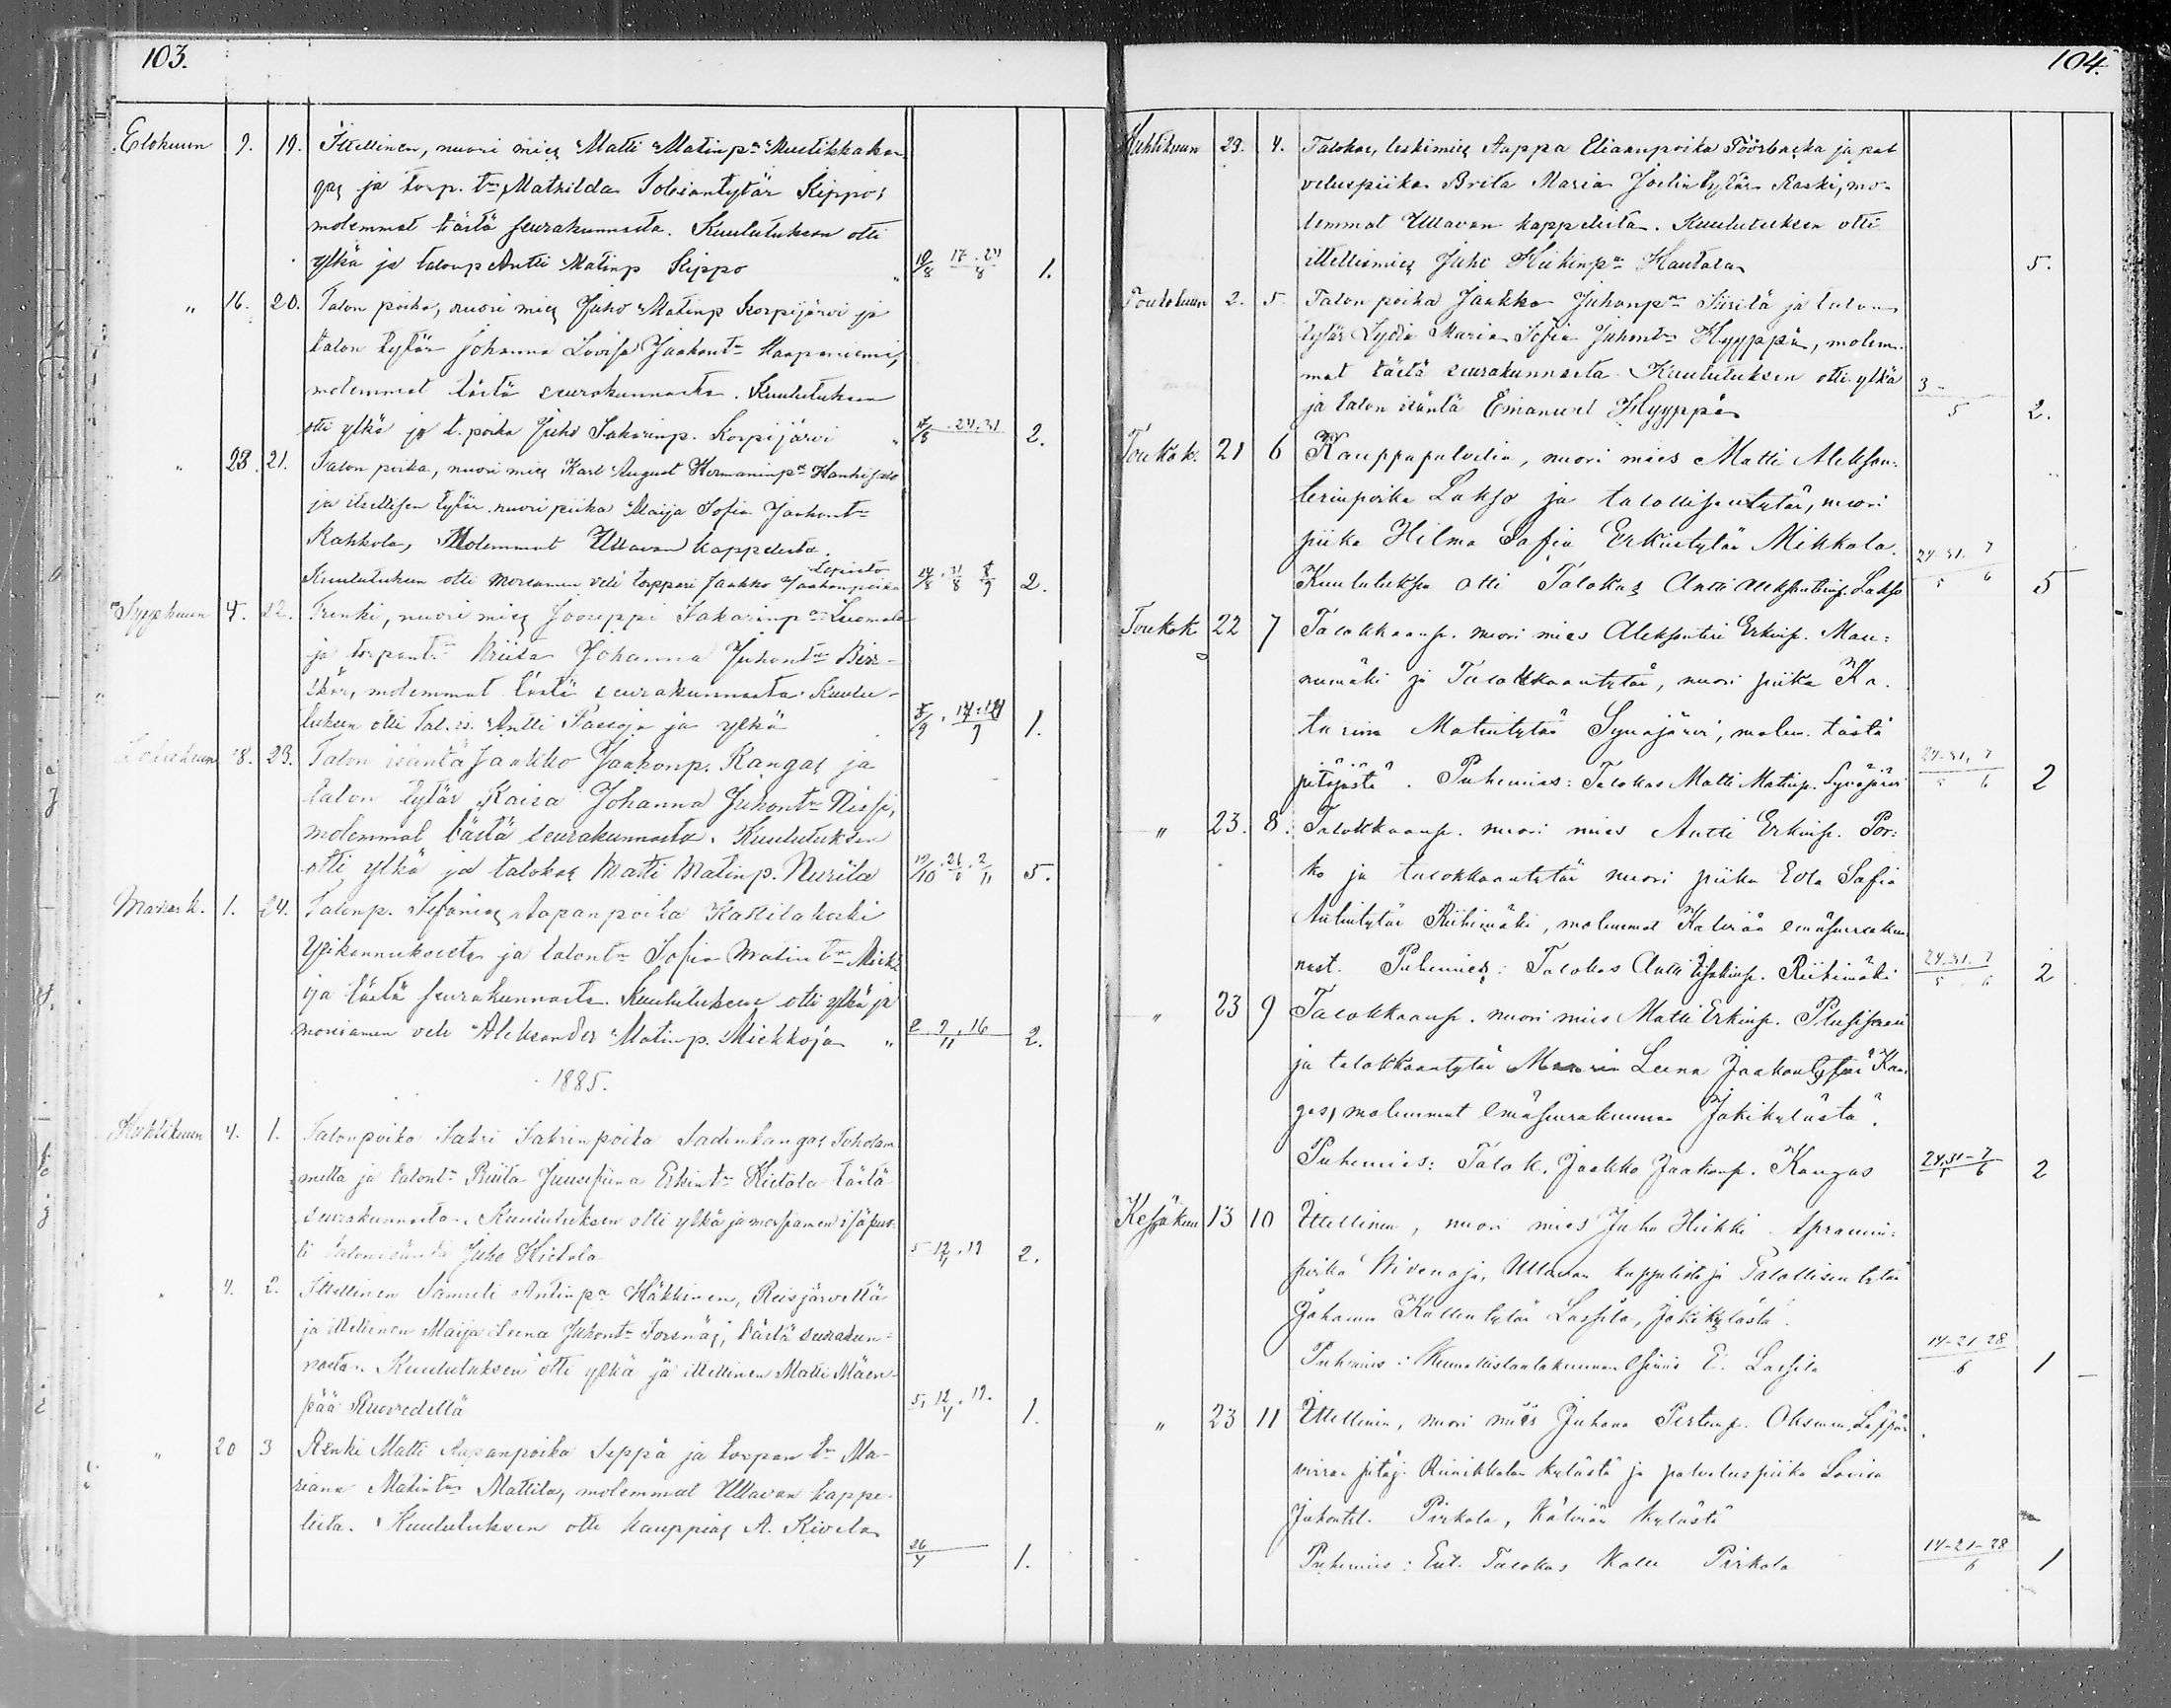 103.
Elokuun 9. 19. Ittellinen, nuori mies Matti Matinp:a Mustikkakan
gas ja torp. t:r Mathilda Tobiantytär Kippo,
molemmat tästä seurakunnasta. Kuulutuksen otti
ylkä ja talonp Antti Matinp Kippo " 10/8 17.24/8 1.
" 16. 20. Talon poika, nuori mies Juho Matinp Korpijärvi ja
talon tytär Johanna Lovisa Jaakont:r Haapaniemi,
molemmat tästä seurakunnasta. Kuulutuksen
otti ylkä ja t. poika Juho Sakarinp. Korpijärvi " 17/8 .24.31 2.
" 23. 21. Talon poika, nuori mies Karl August Hermaninp:a Hanhisalo
ja itellisen tytär nuori piika Maija Sofia Jaakont:r
Rahkola, Molemmat Ullavan kappelista.
Kuulutuksen otti morsiamen veli torppari Jaakko Jaakonpoika Lepistö 24/8 . 31/8 8/9 2.
Syyskuun 4. 22. Renki, nuori mies Jooseppi Sakarinp:a Luomala
ja torpant:r Briita Johanna Juhont:r Biss-
kär, molemmat tästä seurakunnasta. Kuulu-
tuksen otti Tal. is. Antti Passoja ja ylkä 5/9 . 14.21/9 1.
Lokakuun 18. 23. Talon isäntä Jaakko Jaakonp. Kangas ja
talon tytär Kaisa Johanna Juhont:r Nissi,
molemmat tästä seurakunnasta. Kuulutuksen
otti ylkä ja talokas Matti Matinp. Nurila 19/10 . 26/ . 2/11 5.
Marras k. 1. 24. Talonp. Aapanpoika Kattilakoski
Yspikannukselta ja talont:r Sofia Matin t:r Miek
oja tästä seurakunnasta. Kuulutuksen otti ylkä ja
morsiamen veli Aleksander Matinp. Miekkoja " 2.9.16/11 2.
1885.
Huhtikuun 4. 1. Talonpoika Sakri Sakrinpoika Sadinkangas Toholam
milta ja talont:r Briita Juusefiina Erkint:r Hietala tästä
seurakunnasta. Kuulutuksen otti ylkä ja morsiamen isäpuo-
li talonisäntä Juho Hietala 5 12/4 .19 2.
" 4. 2. Ittellinen Samuli Antinp:a Häkkinen, Reisjärveltä
ja ittellinen Maija Leena Juhont:r Forsnäs, tästä seurakun-
nasta. Kuulutuksen otti ylkä ja ittellinen Matti Mäen-
pää Ruovedeltä 5. 12/4 . 19. 1.
" 20 3 Renki Matti Aapanpoika Seppä ja torpan t:r Ma-
riana Matint:r Mattila, molemmat Ullavan kappe-
lista. Kuulutuksen otti kauppias A. Kivela
26/4 1.
104.
Huhtikuun 23. 4. Talokas, leskimies Aappa Eliaanpoika Töösbacka ja pal
veluspiika Brita Maria Joelintytär Raski, mo-
lemmat Ullavan kappelista. Kuulutuksen otti
ittellismies Juho Heikinp:a Hautala 5.
Toukokuun 2. 5. Talon poika Jaakko Juhonp:a Siirilä ja talon
tytär Lydia Maria Sofia Juhont:r Hyyppä, molem-
mat tästä seurakunnasta. Kuulutuksen otti ylkä
ja talon isäntä Emanuel Hyyppä 3-/5 2.
Toukok. 21 6 Kauppapalvelia, nuori mies Matti Aleksan-
terinpoika Lakso ja talollisentytär, nuori
piika Hilma Sofia Erkintytär Mikkola.
Kuulutuksen otti Talokas Antti Aleksanterinp. Lakso 24.31. 7/5 6 5
Toukok 22 7 Talokkaanp. nuori mies Aleksanteri Erkinp. Man-
numäki ja Talokkaantytär, nuori piika Ka-
tarina Matintytär Syväjärvi, molem. tästä
pitäjästä. Puhemies: Talokas Matti Matinp. Syväjärvi 24.31. 7/5 6 2
" 23. 8. Talokkaanp. nuori mies Antti Erkinp. Por-
ko ja talokkaantytär nuori piika Eva Sofia
Antintytär Riihimäki, molemmat Kälviän emäseurakun
nast. Puhemies: Talokas Antti Riihimäki 24.31. 7/5 6 2
" 23 9 Talokkaanp. nuori mies Matti Erkinp.
ja talokkaantytär Maria Leena Jaakontytär Kan-
gas, molemmat emäseurakunnan Jokikylästä.
Puhemies: Talok. Jaakko Jaakonp. Kangas 24.31-7/5 6 2
Kesäkuu 13 10 Ittellinen, nuori mies Juho Heikki
poika Wivenoja, Ullavan kappelista ja Talollisen tytär
Johanna Kallentytär Lassila, Jokikylästä.
Puhemies: Kunnallislautakunnan Esimies E. Lassila 14-21-28/6 1
" 23 11 Ittellinen, nuori mies Juhana Pertinp. Oksman, Leppä-
virran pitäj. Riinikkalan kylästä ja palveluspiika Lovisa
Juhontyt. Pirkola, Kälviän kylästä
Puhemies: Ent. Talokas Kalle Pirkola 14-21-28/6 1